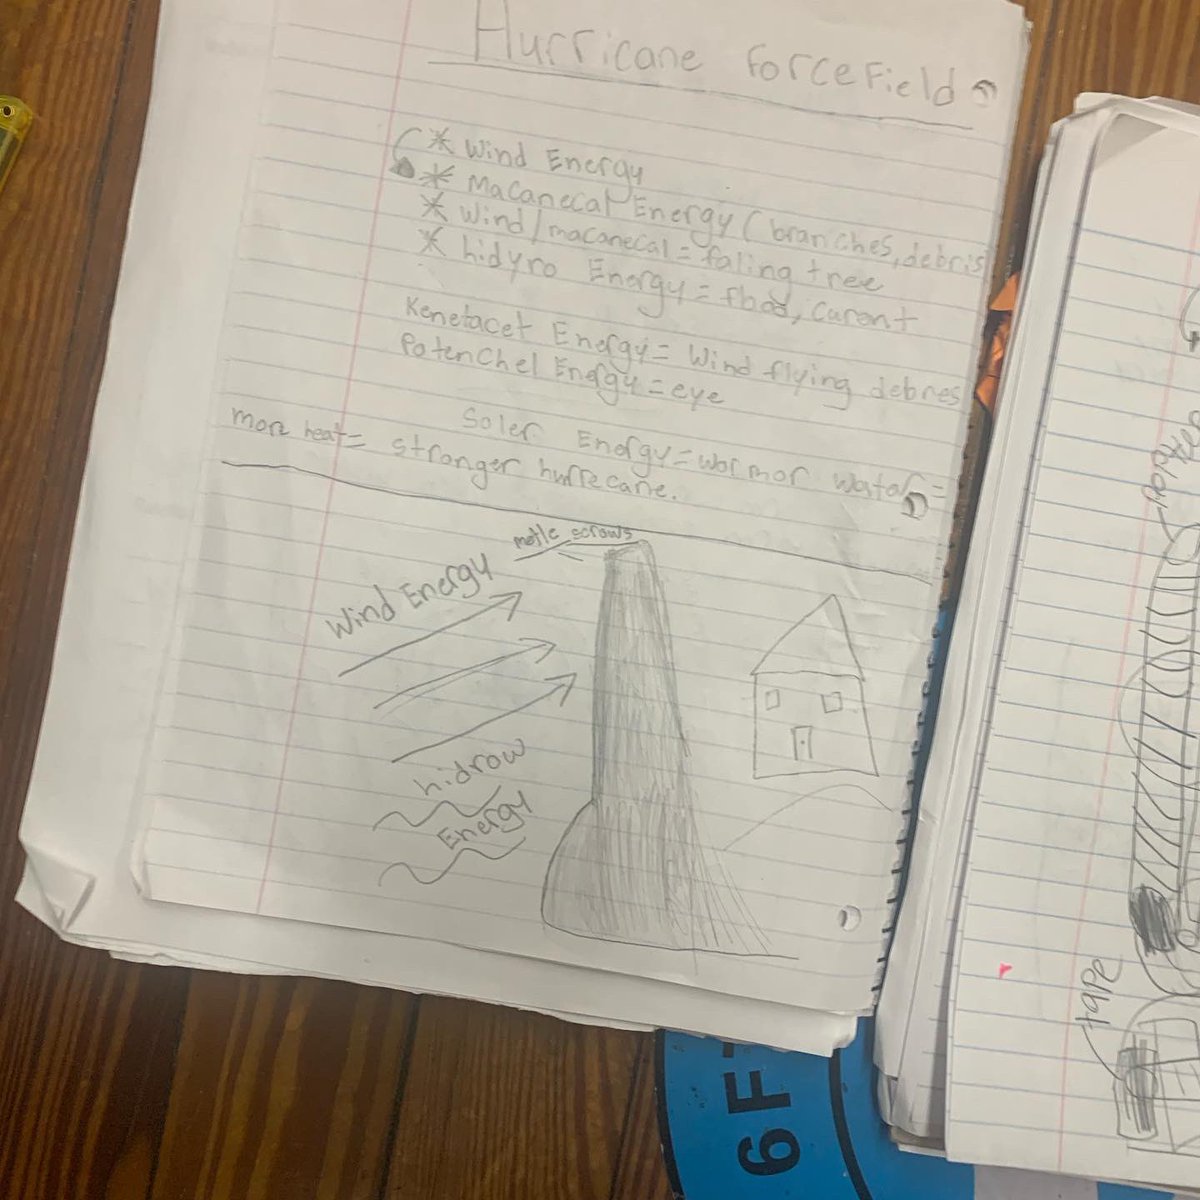 Hurricane Forcefield
* Wind Energy
* Macanecal Energy (branches, debris
* Wind/macanecal = faling tree
* hidyro Energy = flood, curent
Kenetacet Energy = Wind flying debres
Potenchel Energy = eye
Soler Energy = wormor water =
more heat = stronger hurrecane.
metle scrows
Wind Energy
hidrow
Energy
tape
6F